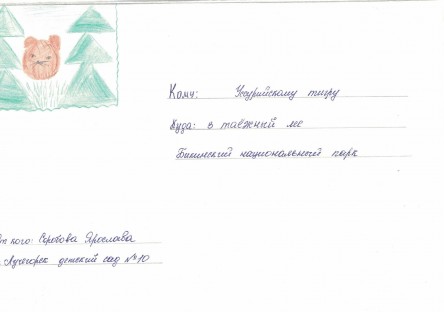 Кому: Уссурийскому тигру
Куда: в таежный лес
Бикинский национальный парк
От кого: Серобова Ярослава
Лучегорск детский сад №10